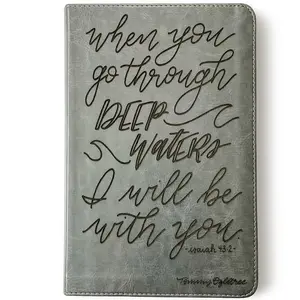 when you
go through
DEEP
WATERS
I will be
with you.
-isaiah 43:2-
Tommy Ogletree